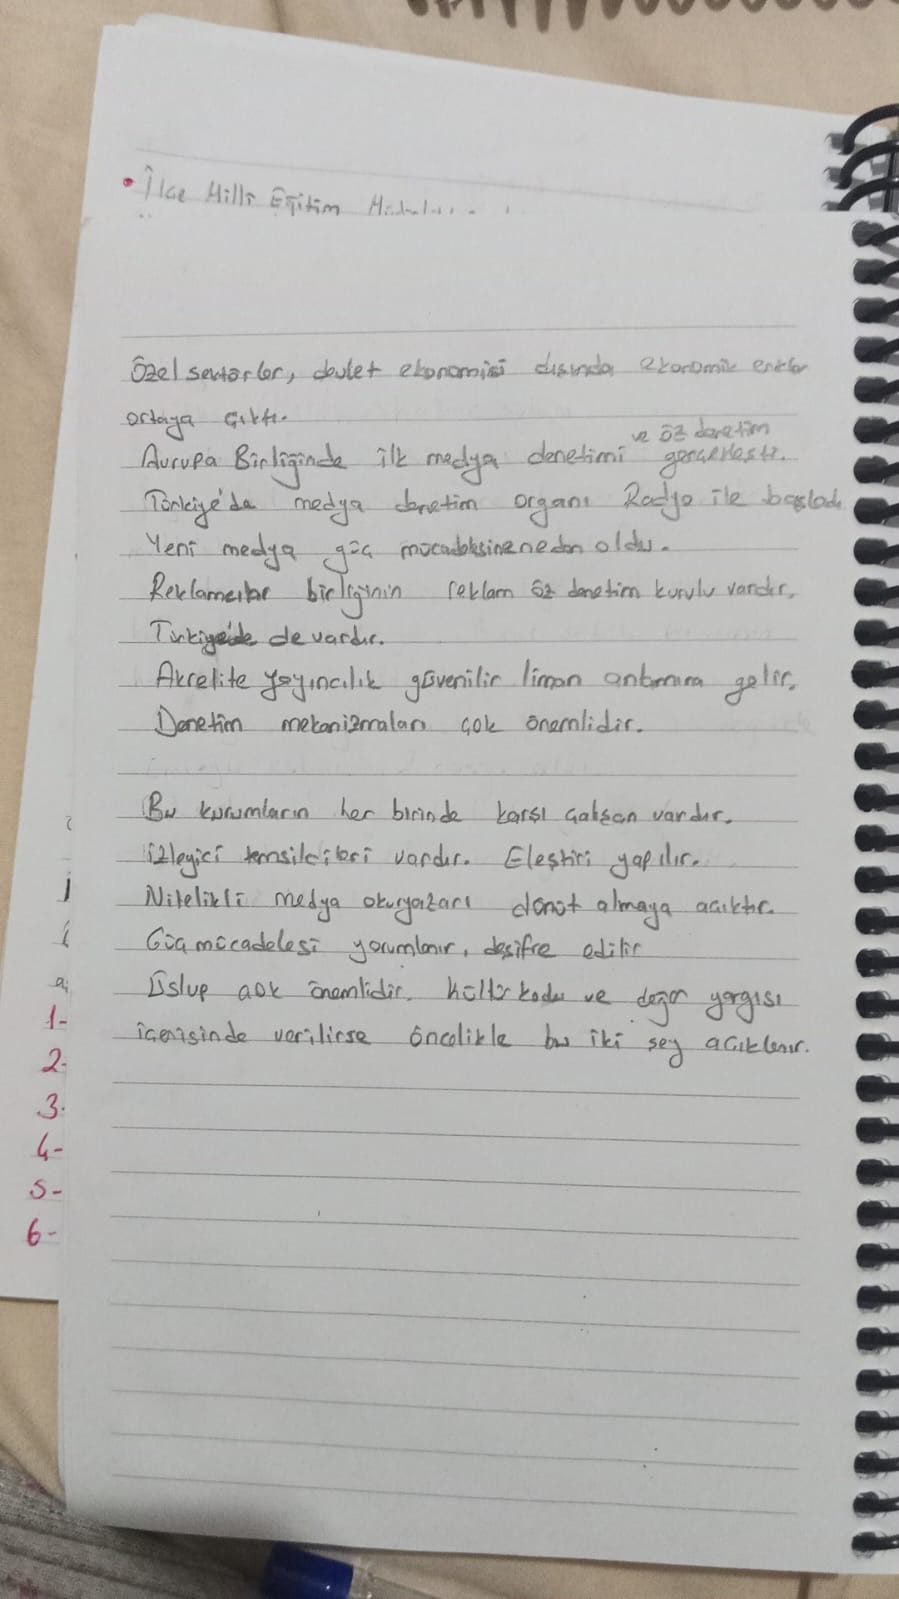 • İlçe Milli Eğitim
Özel sektörler, devlet ekonomisi dışında ekonomik erkler
ortaya çıktı.
ve öz denetim
Avrupa Birliğinde ilk medya denetimi gerçekleşti.
Türkiye'de medya denetim organı Radyo ile başladı
Yeni medya güç mücadelesine neden oldu.
Reklamcılar birliğinin reklam öz denetim kurulu vardır.
Türkiye'de de vardır.
Akrelite yayıncılık güvenilir liman anlamına gelir.
Denetim mekanizmaları çok önemlidir.
Bu kurumların her birinde karşı çalışan vardır.
izleyici temsilcileri vardır. Eleştiri yapılır.
Nitelikli medya okuryazarı dönüt almaya açıktır.
Güç mücadelesi yorumlanır, deşifre edilir
Üslup çok önemlidir. Kültür kodu ve değer yargısı
içerisinde verilirse öncelikle bu iki şey açıklanır.
1-
2-
3-
4-
5-
6-